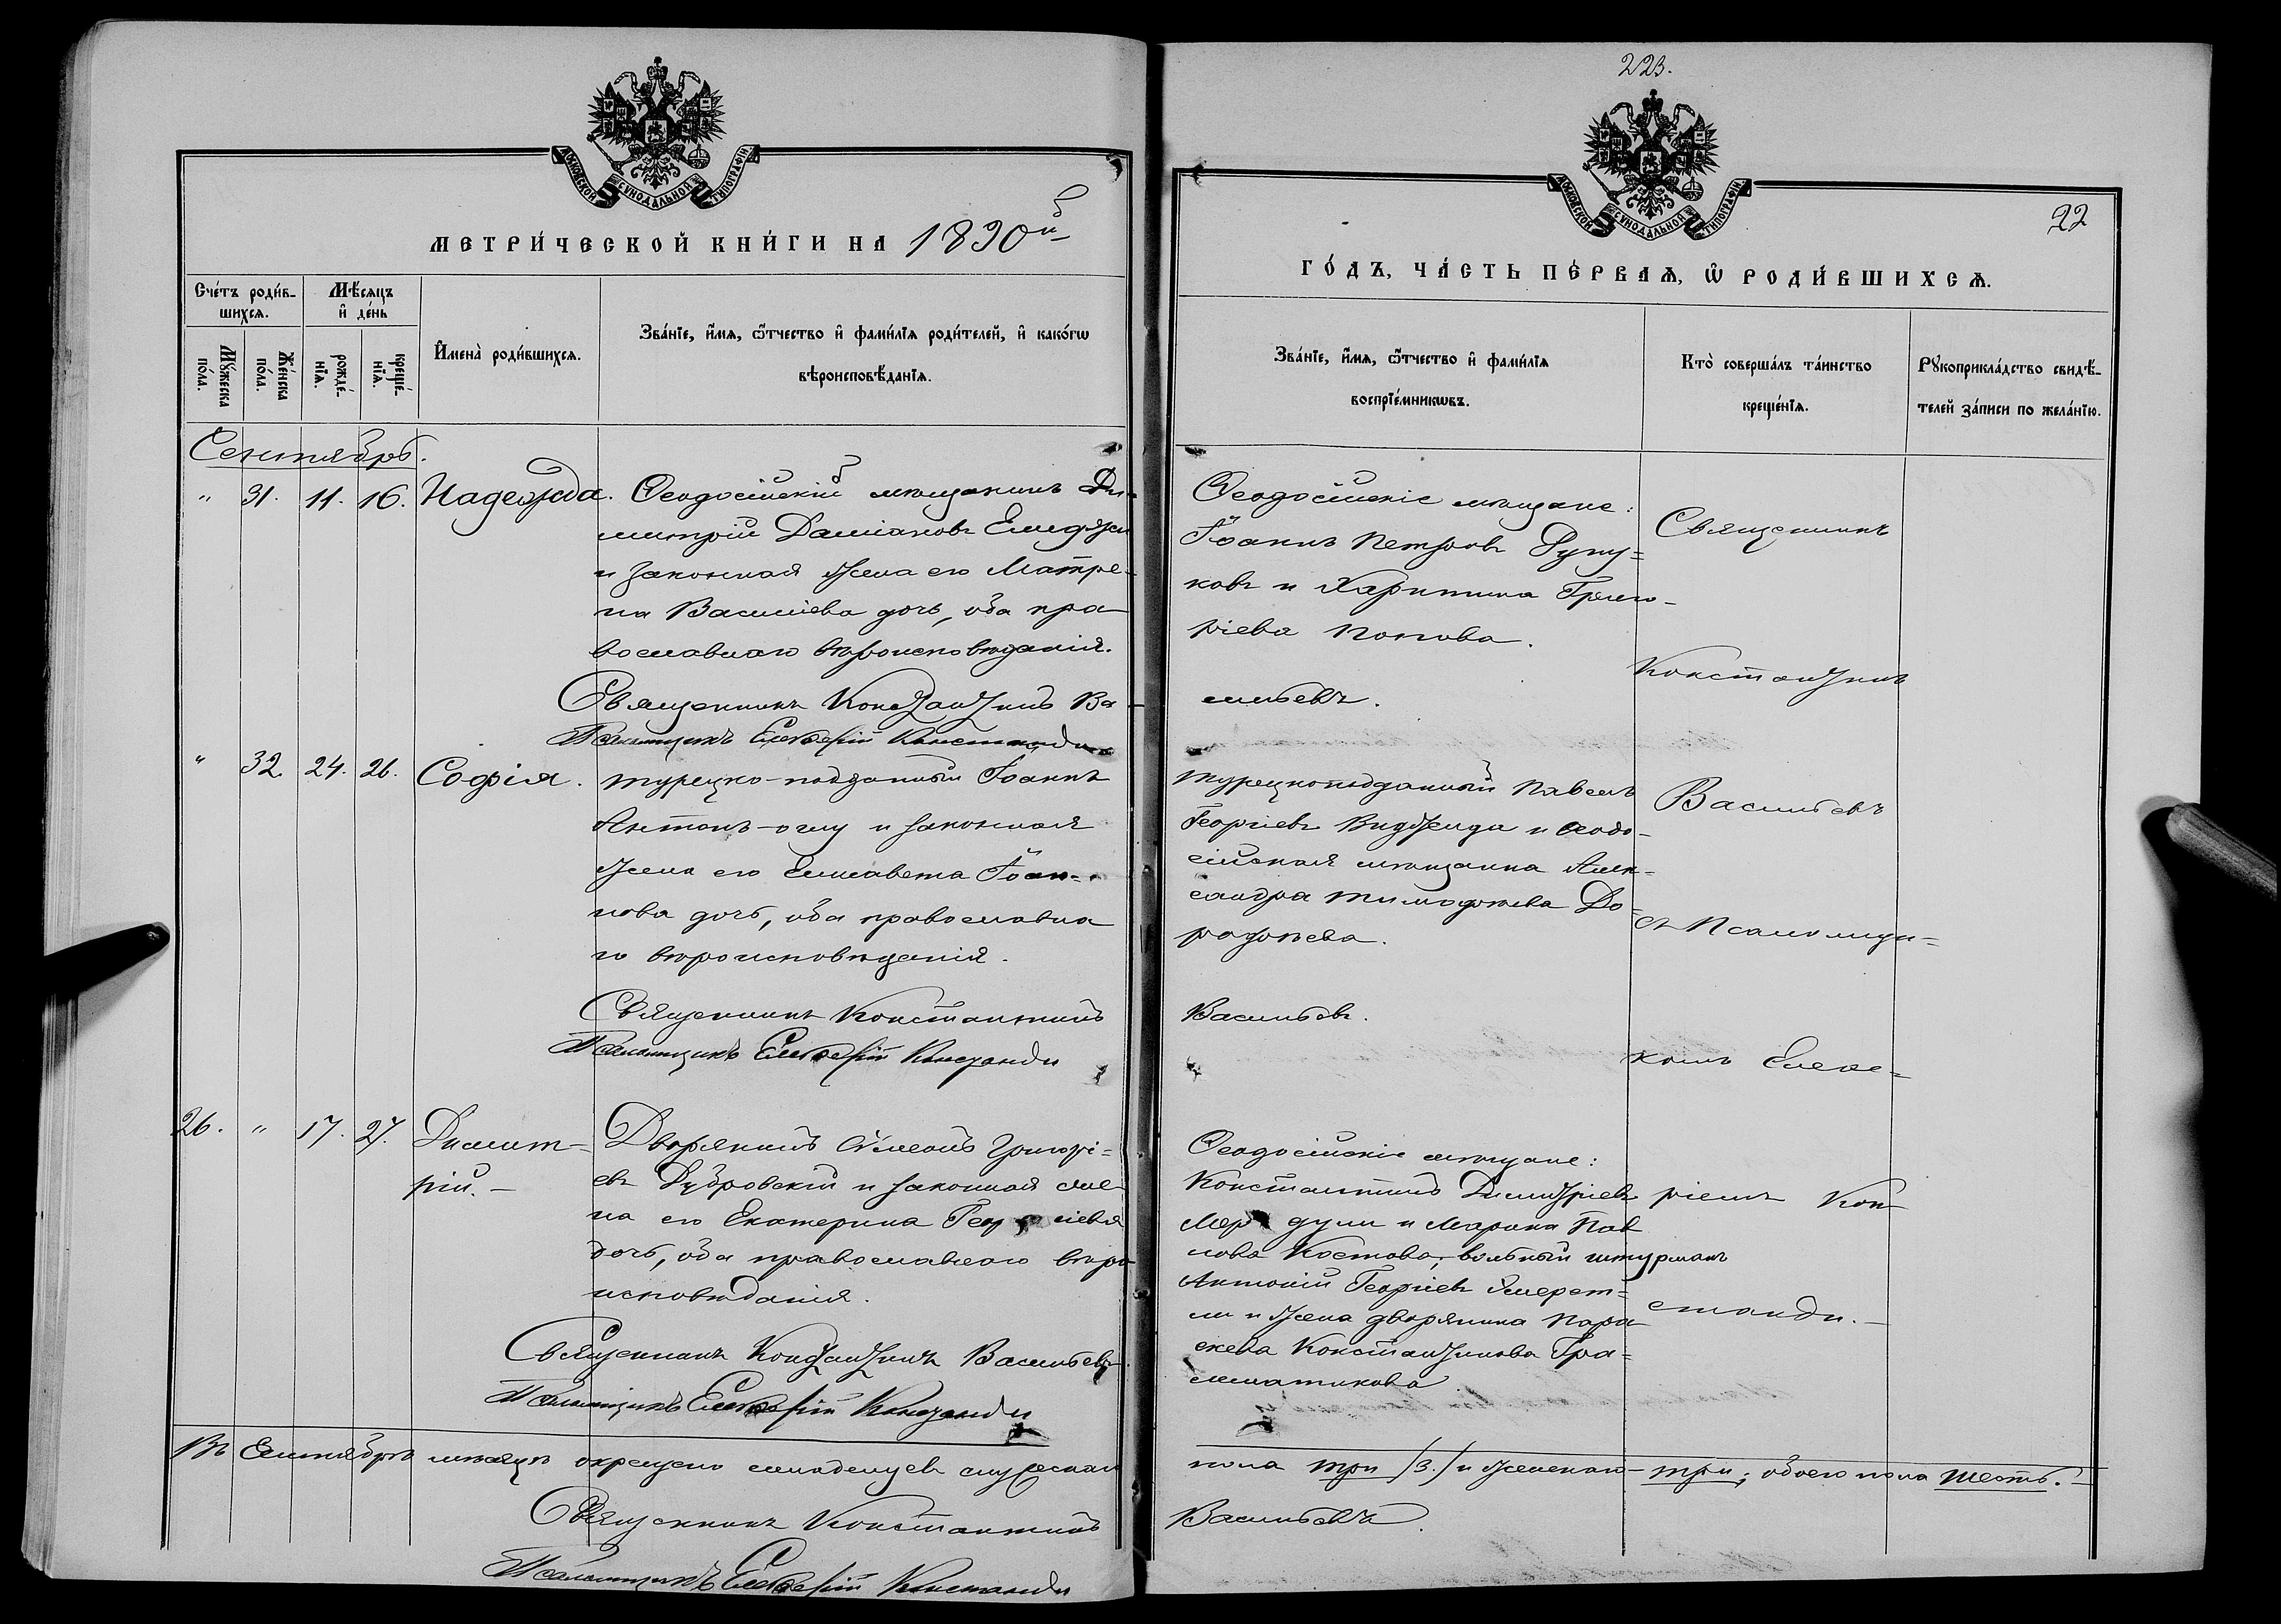 МОСКОВСКОЙ СѴНОДАЛЬНОЙ ТѴПОГРАФІИ.
МЕТРИ́ЧЕСКОЙ КНИ́ГИ НА 1890й
Сче́тъ роди́в-
шихсѧ.
Мѣ́сѧцъ
и҆ де́нь
Мꙋ́жеска
по́ла.
Же́нска
по́ла.
рожде́-
нїѧ.
креще́-
нїѧ.
И҆мена̀ роди́вшихсѧ.
Зва́нїе, и҆́мѧ, ѻ҆́тчество и҆ фами́лїѧ роди́телей, и҆ како́гѡ
вѣроисповѣ́данїѧ.
Сентябрь.
" 31. 11. 16. Надежда.
Ѳеодосійскій мѣщанинъ Ди-
митрій Даміановъ
и законная жена его Матре-
на Василіева дочь, оба пра-
вославнаго вѣроисповѣданія.
Священникъ Константинъ Ва-
Псаломщикъ Елевѳерій Констанди
" 32. 24. 26. Софія.
турецко-подданный Іоаннъ
Антонъ-оглу и законная
жена его Елисавета Іоан-
нова дочь, оба православна
го вѣроисповѣданія.
Священникъ Константинъ
Псаломщикъ Елевѳерій Констанди
26. " 17. 27. Димит-
рій.-
Дворянинъ Сѵмеонъ Григорі-
евъ Дубровскій и законная же-
на его Екатерина Георгіева
дочь, оба православнаго вѣро
исповѣданія.
Священникъ Константинъ Васильевъ.
Псаломщикъ Елевѳерій Констанди
Въ Сентябрѣ мѣсяцѣ окрещено младенцевъ мужескаго
Священникъ Константинъ
Псаломщикъ Елевѳерій Констанди
223.
МОСКОВСКОЙ СѴНОДАЛЬНОЙ ТѴПОГРАФІИ.
22
ГО́ДЪ, ЧА́СТЬ ПЕ́РВАѦ, Ѡ҆ РОДИ́ВШИХСѦ.
Зва́нїе, и҆́мѧ, ѻ҆́тчество и҆ фами́лїѧ
воспрїе́мникѡвъ.
Кто̀ соверша́лъ та́инство
креще́нїѧ.
Рꙋкоприкла́дство свидѣ́-
телей за́писи по жела́нїю.
Ѳеодосійскіе мѣщане:
Іоаннъ Петровъ
и Харитина Григо-
ріева Попова.
сильевъ.
турецкоподданный Павелъ
Георгіевъ и Ѳеодо-
сійская мѣщанка Алек-
сандра Тимоѳеева До-
роѳеева.
Васильевъ.
Ѳеодосійскіе мѣщане:
Константинъ Димитріевъ
и Марина Пав
лова Костова, вольный штурманъ
Антоній Георгіевъ
и жена дворянина Пара
скева Константинова Гра-
мматикова
Священникъ
Константинъ
Васильевъ
съ Псаломщи-
комъ Елевѳе-
ріемъ Кон-
станди.-
пола три /3./ и женскаго - три; обоего пола шесть.-
Васильевъ.